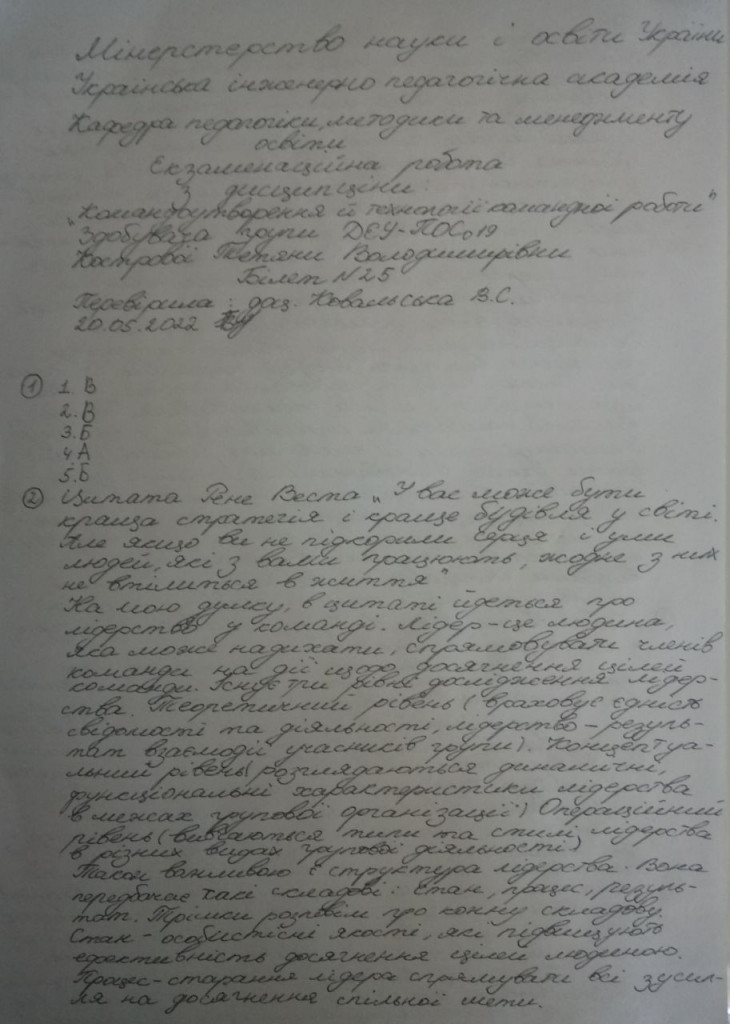 Мінерстерство науки і освіти України
Українська інженерно педагогічна академія
Кафедра педагогіки, методики та менеджменту
освіти
Екзаменаційна робота
з дисципліни:
„Командоутворення й технології командної роботи"
Здобувача групи ДЄУ-ПОСо19
Кострової Тетяни Володимирівни
Білет №25
Перевірила: доц. Ковальська В.С.
20.05.2022
① 1. В
2. В
3. Б
4. А
5. Б
② Цитата Рене Веста „У вас може бути
краща стратегія і краще будівля у світі.
Але якщо ви не підкорили серця і уми
людей, які з вами працюють, жодне з них
не втілиться в життя"
На мою думку, в цитаті йдеться про
лідерство у команді. Лідер-це людина,
яка може надихати, спрямовувати членів
команди на дії щодо досягнення цілей
команди. Існує три рівні дослідження лідер-
ства. Теоретичний рівень (враховує єдність
свідомості та діяльності, лідерство-резуль-
тат взаємодії учасників групи). Концептуа-
льний рівень (розглядаються динамічні,
функціональні характеристики лідерства
в межах групової організації) Операційний
рівень (вивчаються типи та стилі лідерства
в різних видах групової діяльності)
Також важливою є структура лідерства. Вона
передбачає такі складові: стан, процес, резуль-
тат. Трішки розповім про кожну складову.
Стан - особистісні якості, які підвищують
ефективність досягнення цілей людиною.
Процес-старання лідера спрямувати всі зусил-
ля на досягнення спільної мети.